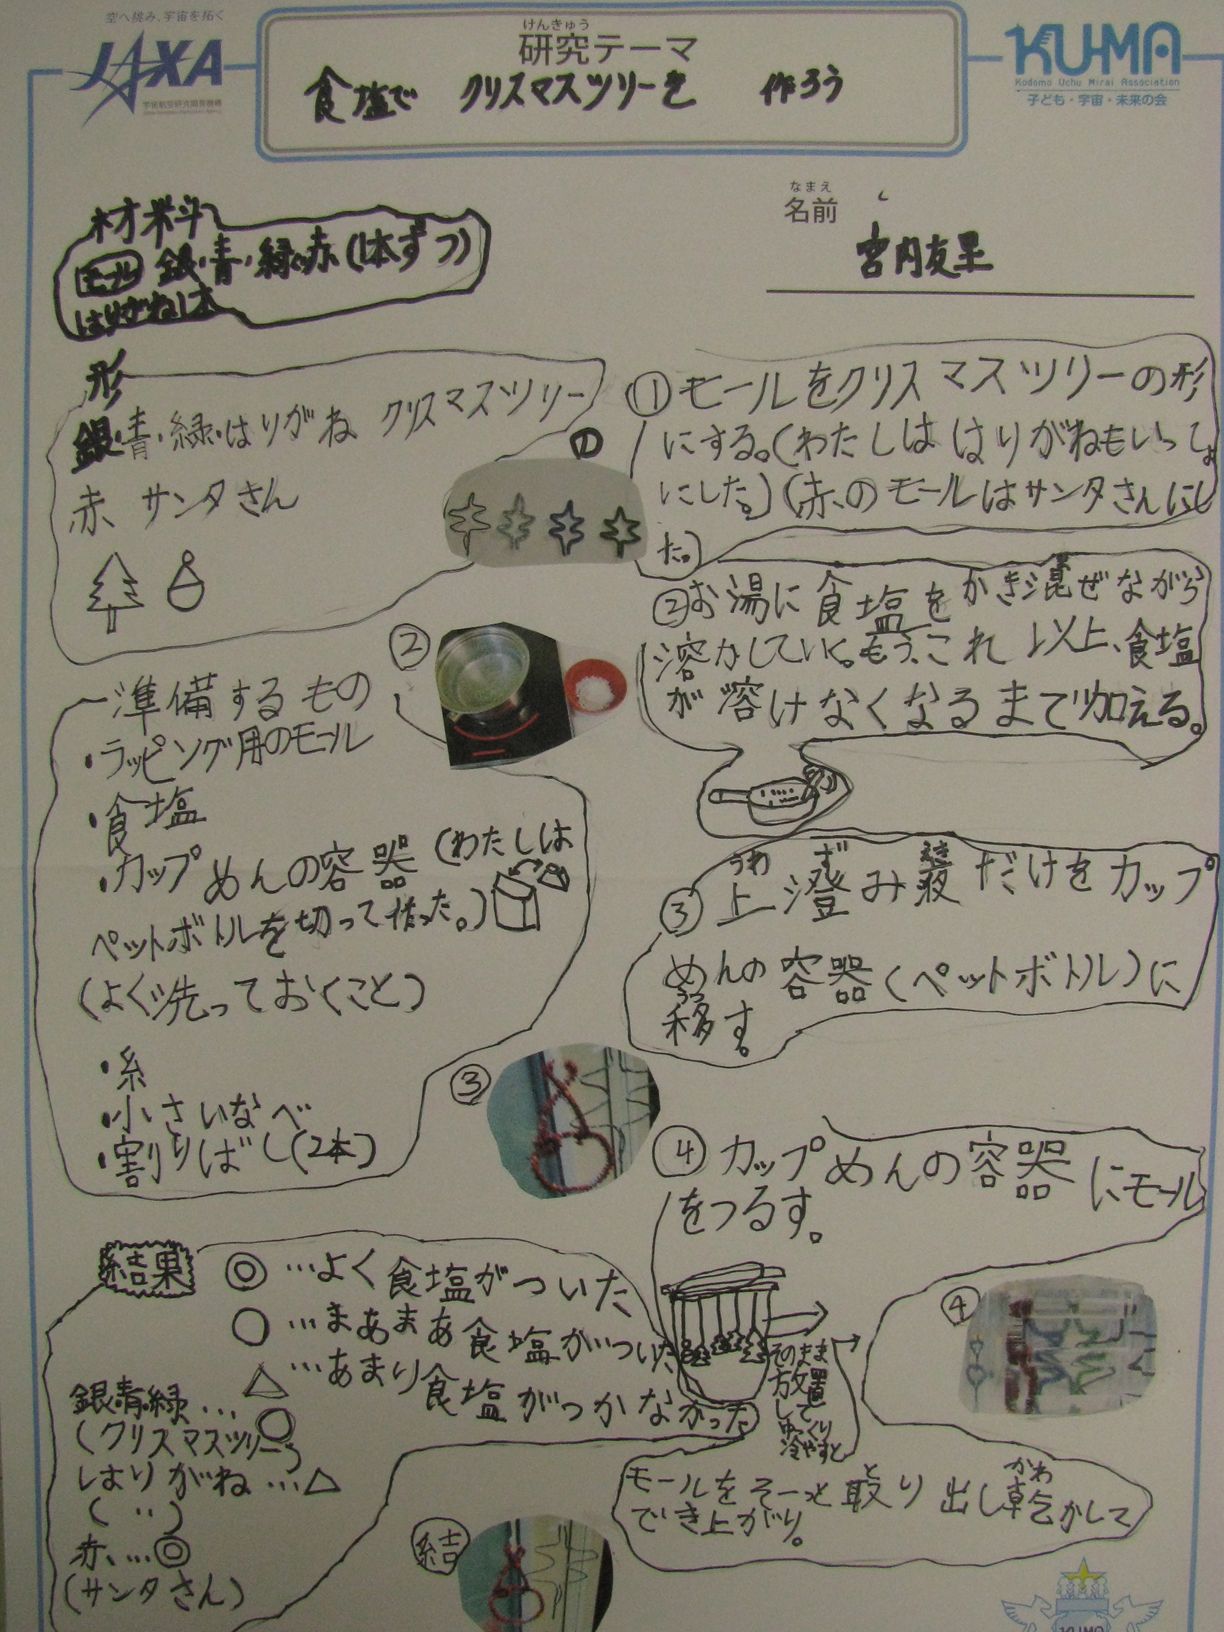 空へ挑み、宇宙を拓く
JAXA
宇宙航空研究開発機構
けんきゅう
研究テーマ
食塩で クリスマスツリーを 作ろう
KU-MA
Kodomo Uchu Mirai Association
子ども・宇宙・未来の会
なまえ
名前
宮内友里
材料
モール 銀・青・緑・赤(1本ずつ)
はりがね1本
形
銀・青・緑・はりがね クリスマスツリー
赤、サンタさん
①
①モールをクリスマスツリーの形
にする。(わたしははりがねもいっしょ
にした。)(赤のモールはサンタさんにし
た。)
②お湯に食塩をかき混ぜながら
溶かしていく。もう、これ以上、食塩
が溶けなくなるまで加える。
②
準備するもの
・ラッピング用のモール
・食塩
・カップめんの容器(わたしは
ペットボトルを切って作った。)
(よく洗っておくこと)
・糸
・小さいなべ
・割りばし(2本)
うわ ず えき
③上澄み液だけをカップ
めんの容器(ペットボトル)に
うつ
移す。
③
④カップめんの容器にモール
をつるす。
そのまま
放置
して
ゆっくり
冷やすと
④
と かわ
モールをそーっと取り出し乾かして
でき上がり。
結果
◎…よく食塩がついた
○…まあまあ食塩がついた
△…あまり食塩がつかなかった
銀・青・緑…○
(クリスマスツリー)
はりがね…△
(〃)
赤、…◎
(サンタさん)
結
KUMA